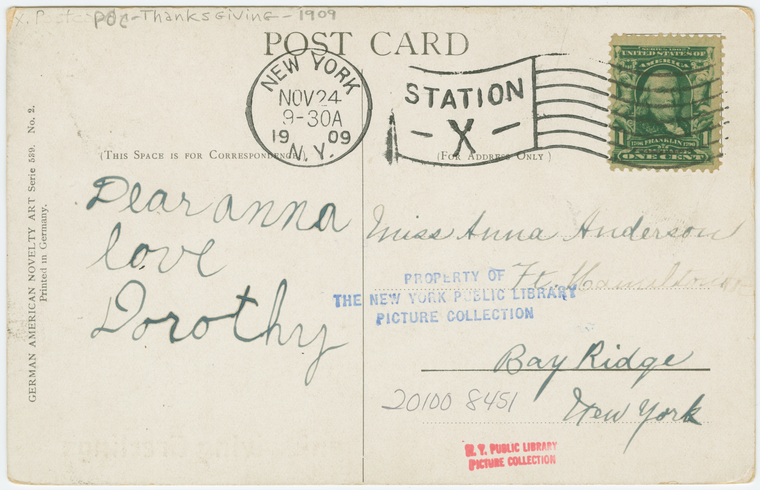 PDC-Thanksgiving-1909
POST CARD
NEW YORK
NOV 24
9-30A
1909
N.Y.
STATION
-X-
SERIES 1902
UNITED STATES OF
AMERICA
1 1790 FRANKLIN 1706 1
ONE CENT
(This Space is for Correspondence)
(For Address Only)
GERMAN AMERICAN NOVELTY ART Serie 539. No. 2.
Printed in Germany.
Dear anna
love
Dorothy
Miss Anna Anderson
Ft. Hamilton
Bay Ridge
New York
PROPERTY OF
THE NEW YORK PUBLIC LIBRARY
PICTURE COLLECTION
20100 8451
N. Y. PUBLIC LIBRARY
PICTURE COLLECTION